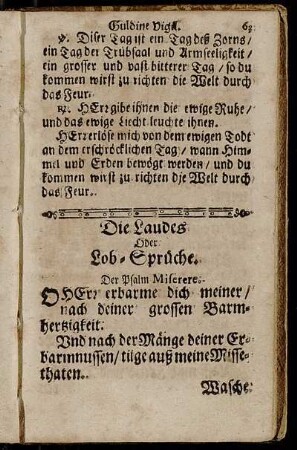 Guldine Vigil. 63
℣. Diser Tag ist ein Tag deß Zorns /
ein Tag der Trübsaal und Armseeligkeit /
ein grosser und vast bitterer Tag / so du
kommen wirst zu richten die Welt durch
das Feur.
℟. HErr gibe ihnen die ewige Ruhe /
und das ewige Liecht leuchte ihnen.
HErr erlöse mich von dem ewigen Todt
an dem erschröcklichen Tag / wann Him-
mel und Erden bewögt werden / und du
kommen wirst zu richten die Welt durch
das Feur.
Die Laudes
Oder
Lob-Sprüche.
Der Psalm Miserere.
O HErr erbarme dich meiner /
nach deiner grossen Barm-
hertzigkeit.
Vnd nach der Mänge deiner Er-
barmnussen / tilge auß meine Misse-
thaten.
Wasche